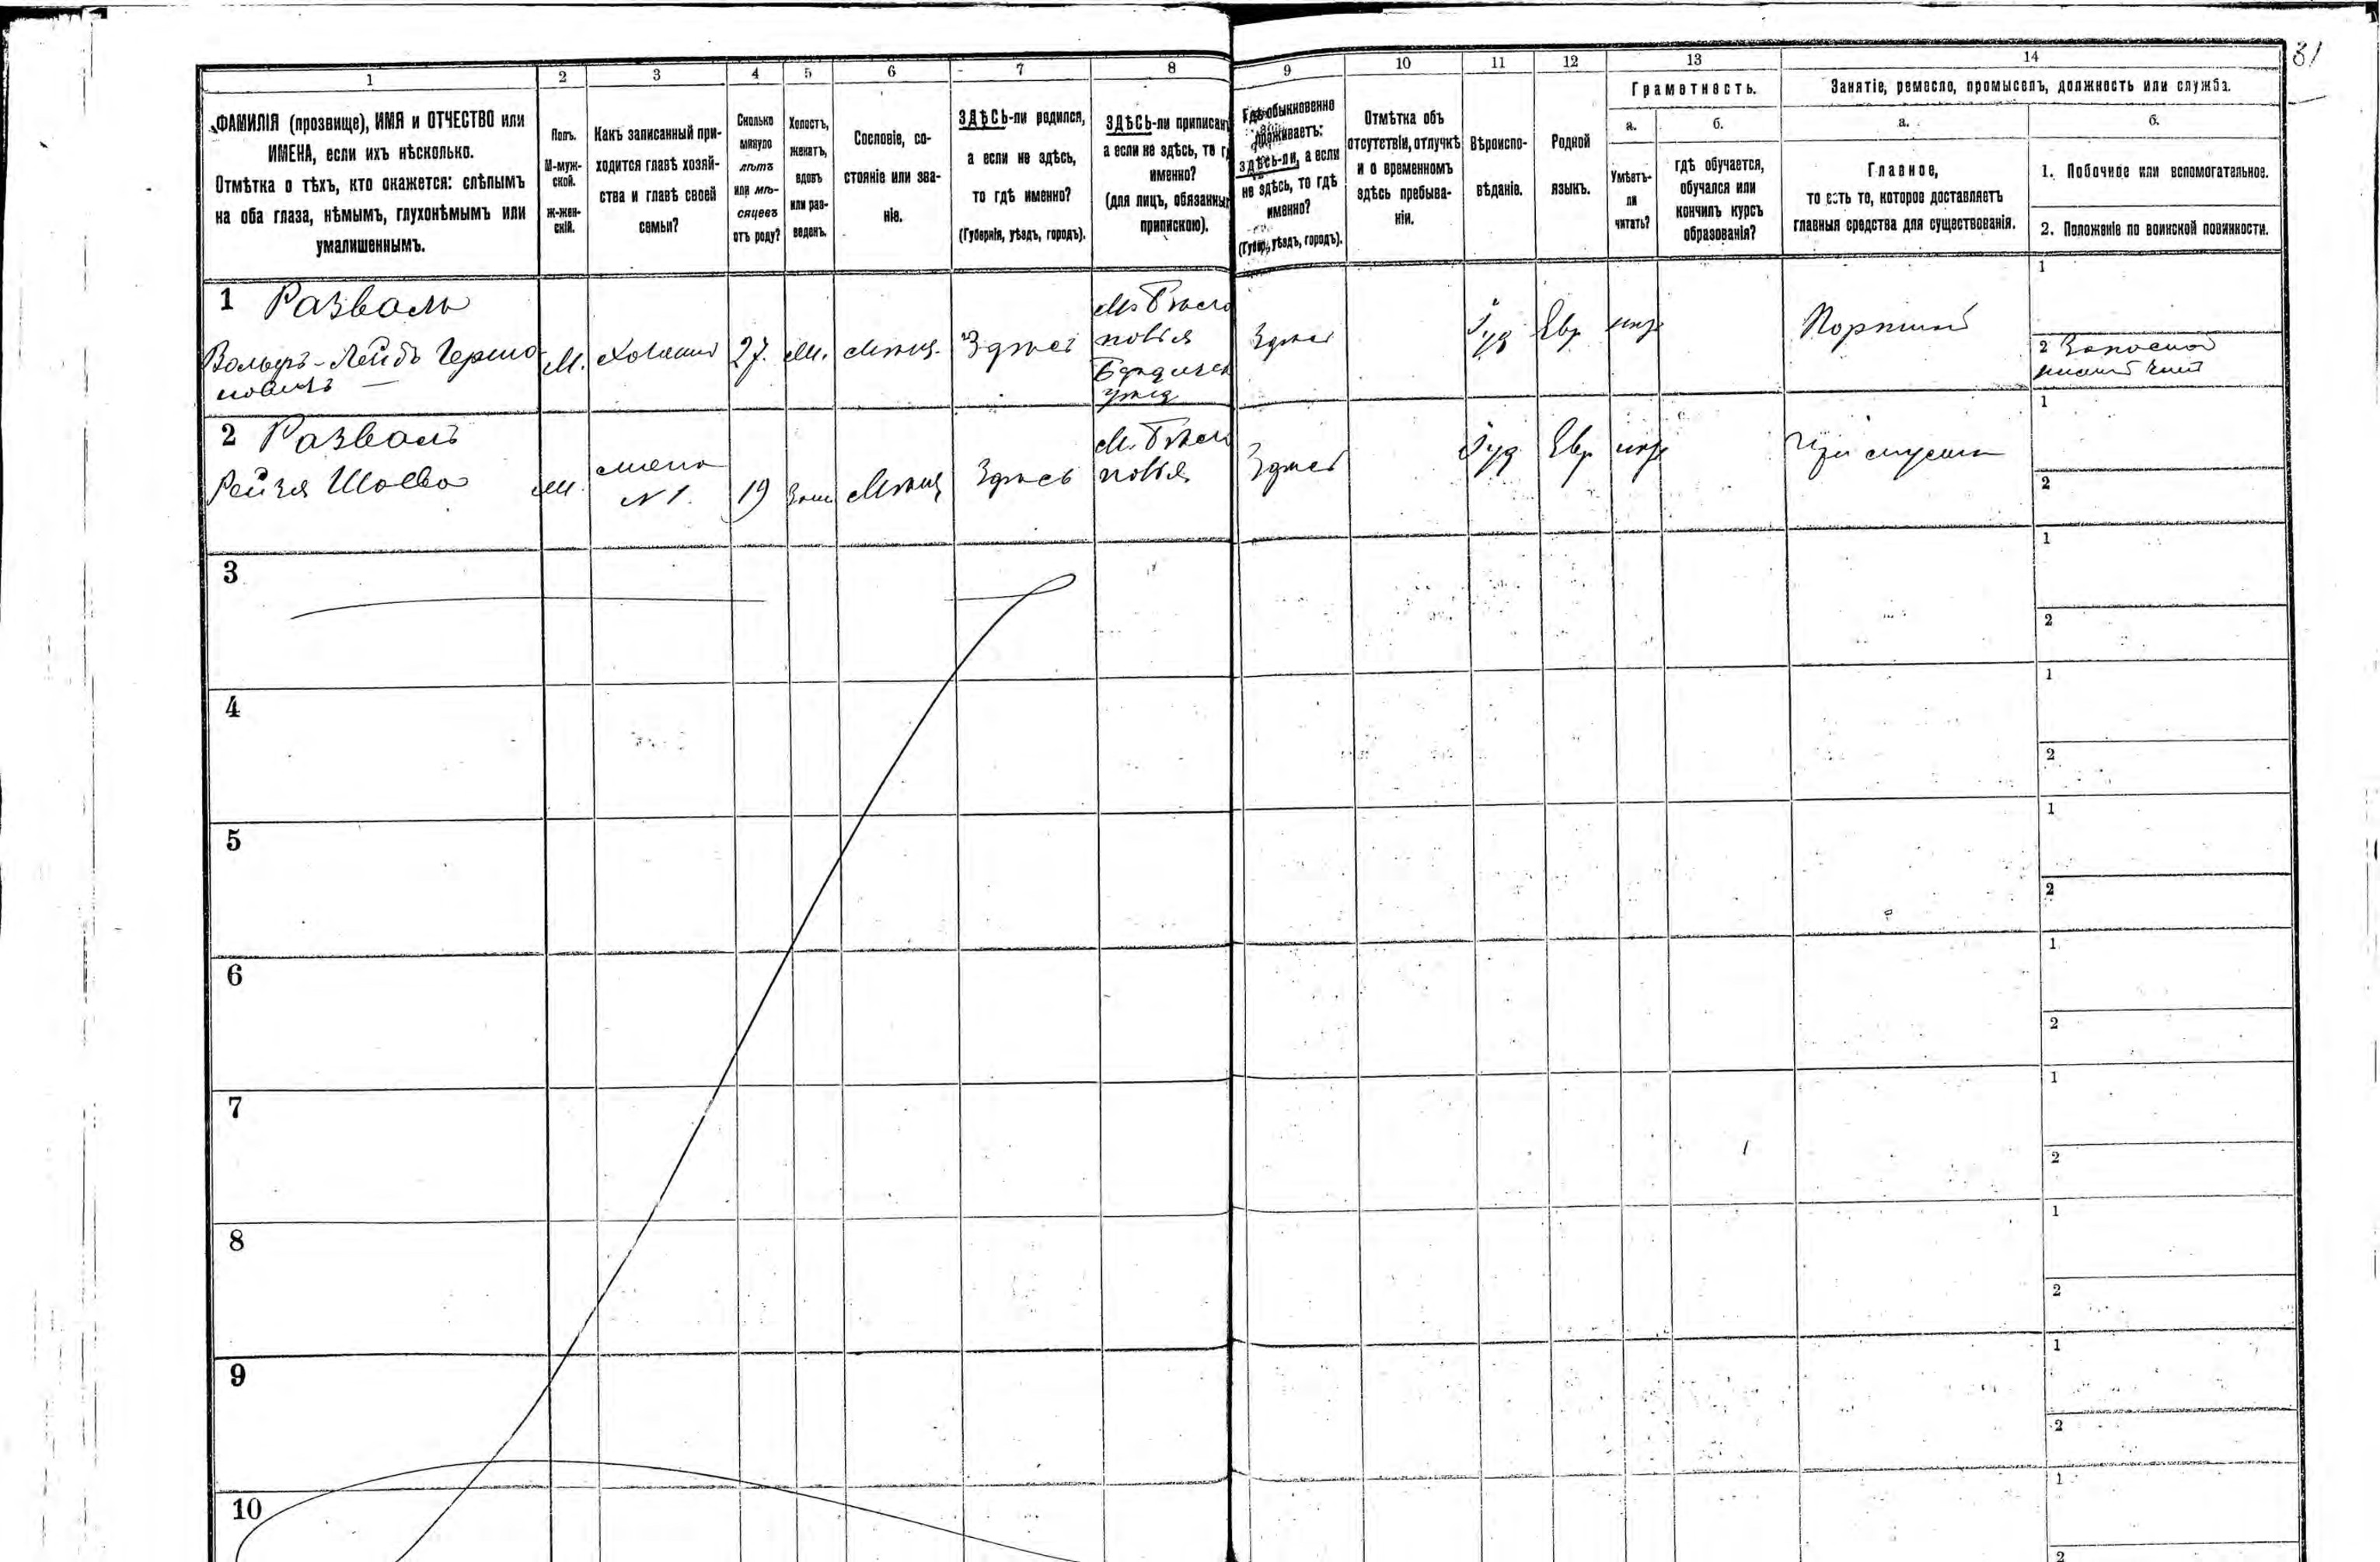 31
1
2
3
4
5
6
7
8
9
10
11
12
13
14
ФАМИЛІЯ (прозвище), ИМЯ и ОТЧЕСТВО или
ИМЕНА, если ихъ нѣсколько.
Отмѣтка о тѣхъ, кто окажется: слѣпымъ
на оба глаза, нѣмымъ, глухонѣмымъ или
умалишеннымъ.
Полъ.
М-муж-
ской.
Ж-жен-
скій.
Какъ записанный при-
ходится главѣ хозяй-
ства и главѣ своей
семьи?
Сколько
минуло
лѣтъ
или мѣ-
сяцевъ
отъ роду?
Холостъ,
женатъ,
вдовъ
или раз-
веденъ.
Сословіе, со-
стояніе или зва-
ніе.
ЗДѢСЬ-ли родился,
а если не здѣсь,
то гдѣ именно?
(Губернія, уѣздъ, городъ).
ЗДѢСЬ-ли приписанъ
а если не здѣсь, то г
именно?
(для лицъ, обязанныхъ
припискою).
Гдѣ обыкновенно
проживаетъ:
здѣсь-ли, а если
не здѣсь, то гдѣ
именно?
(Губер., уѣздъ, городъ).
Отмѣтка объ
отсутствіи, отлучкѣ
и о временномъ
здѣсь пребыва-
ніи.
Вѣроиспо-
вѣданіе.
Родной
языкъ.
Грамотность.
а.
Умѣетъ-
ли
читать?
б.
гдѣ обучается,
обучался или
кончилъ курсъ
образованія?
Занятіе, ремесло, промыселъ, должность или служба.
а.
Главное,
то есть то, которое доставляетъ
главныя средства для существованія.
б.
1. Побочное или вспомогательное.
2. Положеніе по воинской повинности.
1 Разваль
Вольфъ-Лейбъ Гершо-
новичъ
М.
Хозяинъ
27.
Ж.
Мѣщ.
Здѣсь
М. Бѣло
повья
Бердичев
уѣзд
Здѣсь
Іуд
Евр
Портной
1
2 Запасной
нижній чинъ
2 Разваль
Рейзя Шоева
жена
N 1.
19
Зам
Мѣщ
Здѣсь
М. Бѣло
повья
Здѣсь
Іуд
Евр
При мужѣ
1
2
3
1
2
4
1
2
5
1
2
6
1
2
7
1
2
8
1
2
9
1
2
10
1
2